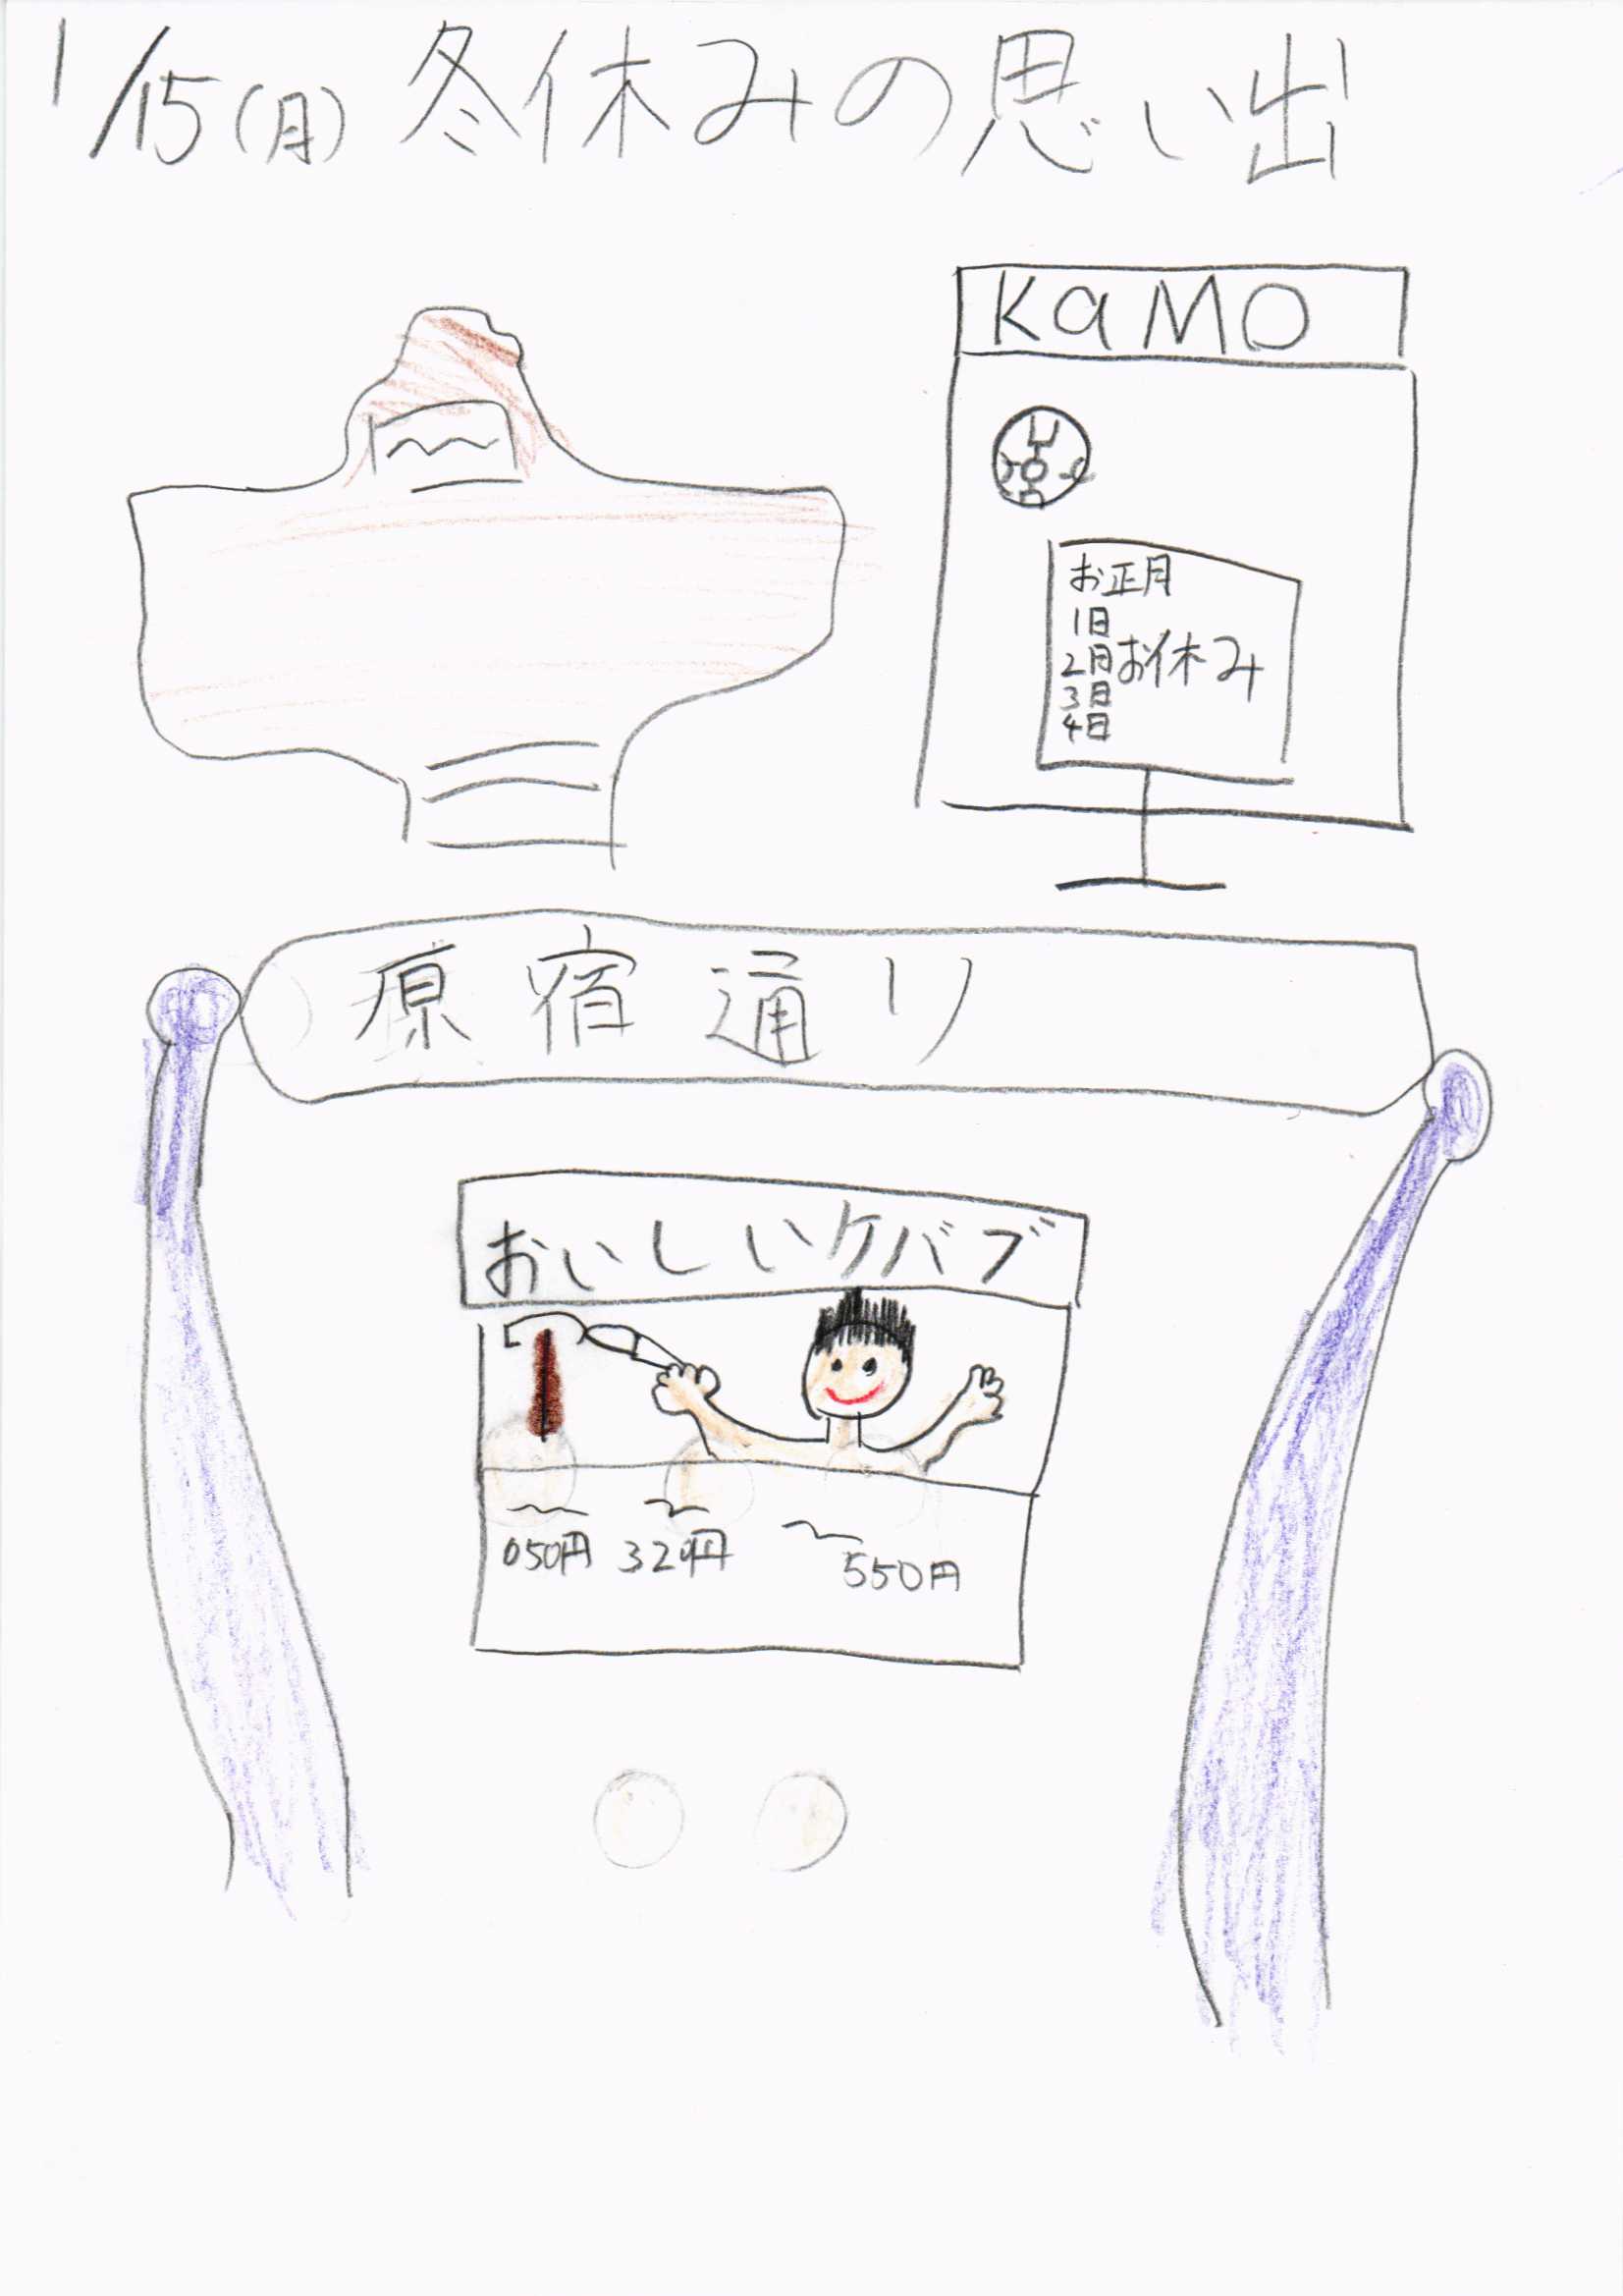 1/15(月) 冬休みの思い出
KaMO
お正月
1日
2日お休み
3日
4日
原宿通り
おいしいケバブ
050円 320円 550円